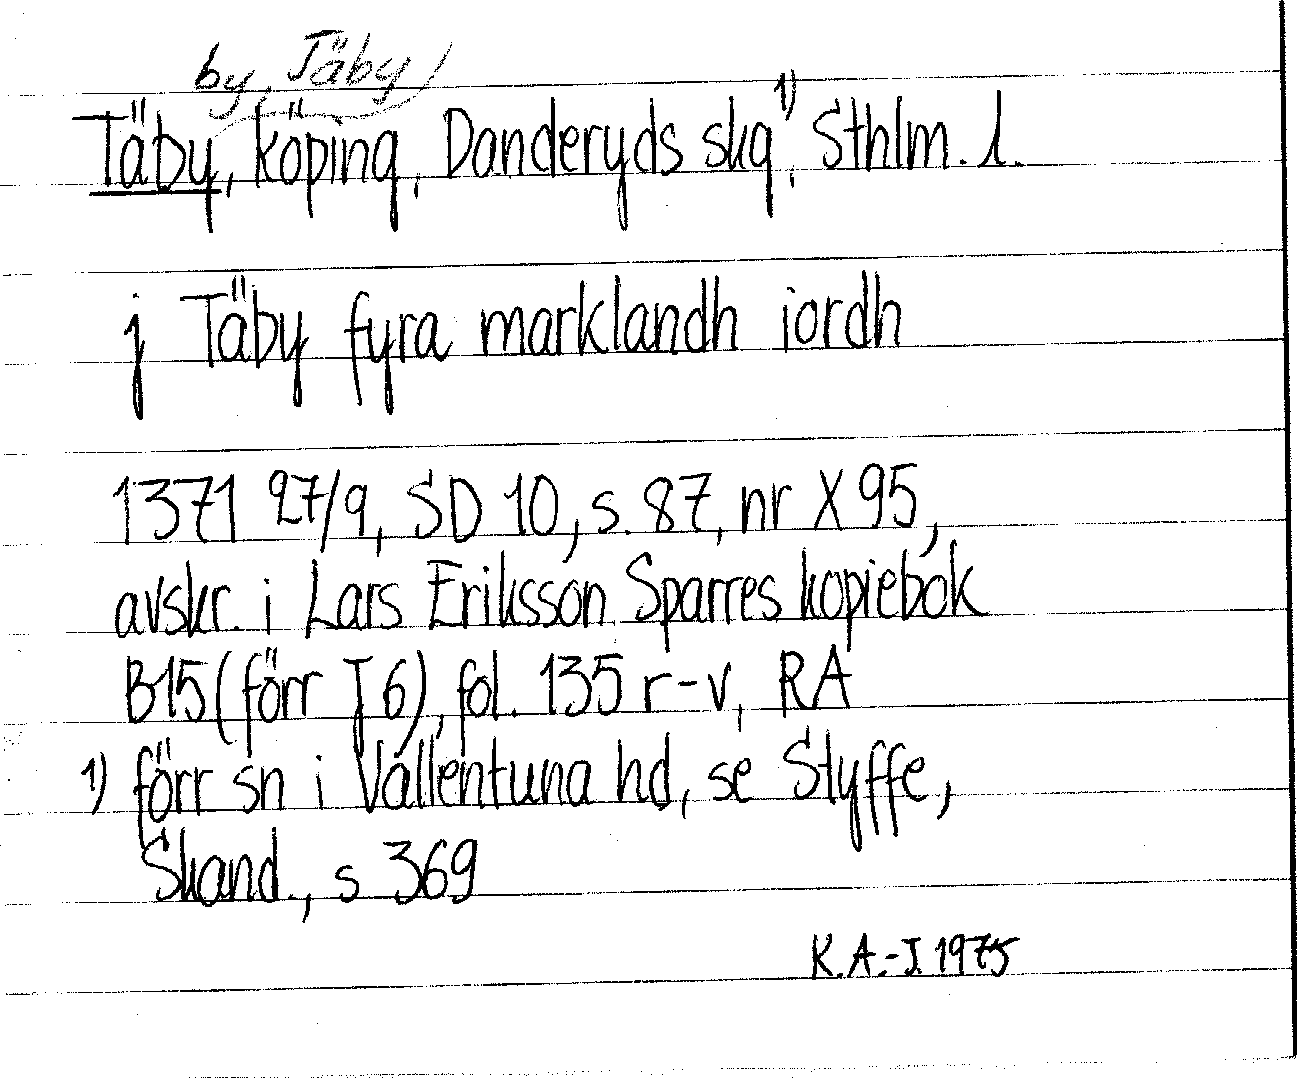 by, Täby
Täby, köping, Danderyds skg¹⁾, Sthlm. l.
j Täby fyra marklandh iordh
1371 27/9, SD 10, s. 87, nr X 95,
avskr. i Lars Eriksson Sparres kopiebok
B15 (förr I 6), fol. 135 r-v, RA
1) förr sn i Vallentuna hd, se Styffe,
Skand., s 369
K.A.-J. 1975